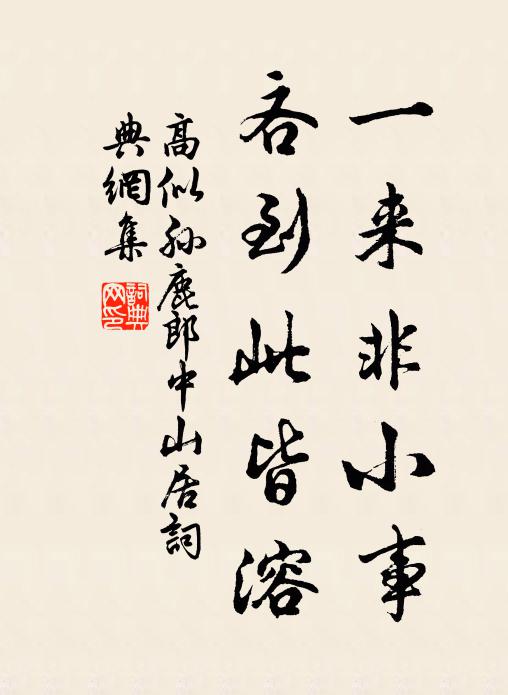 一来非小事
吝到此皆溶
高似孙鹿郎中山居詞
典網集
詞典
网印